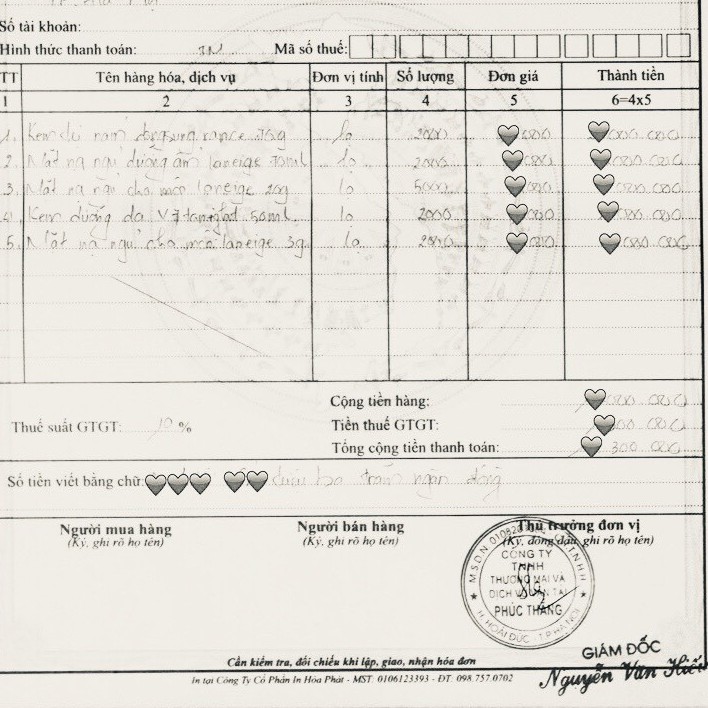 Số tài khoản:
Hình thức thanh toán: Mã số thuế:
TT Tên hàng hóa, dịch vụ Đơn vị tính Số lượng Đơn giá Thành tiền
1 2 3 4 5 6=4x5
1. Kem 70g lọ 2000 000 000 000
2. Mặt nạ ngủ dưỡng ẩm laneige 70ml lọ 2000 000 000 000
3. Mặt nạ ngủ cho môi laneige 20g lọ 5000 000 000 000
4. Kem dưỡng da 50ml lọ 2000 000 000 000
5. Mặt nạ ngủ cho môi laneige 3g lọ 2000 000 000 000
Cộng tiền hàng: 000 000
Thuế suất GTGT: 10 % Tiền thuế GTGT: 00 000
Tổng cộng tiền thanh toán: 300 000
Số tiền viết bằng chữ: triệu ba trăm ngàn đồng
Người mua hàng Người bán hàng Thủ trưởng đơn vị
(Ký, ghi rõ họ tên) (Ký, ghi rõ họ tên) (Ký, đóng dấu, ghi rõ họ tên)
CÔNG TY
TNHH
THƯƠNG MẠI VÀ
DỊCH VỤ VẬN TẢI
PHÚC THẮNG
H. HOÀI ĐỨC - T.P HÀ NỘI
GIÁM ĐỐC
Nguyễn Văn Hiếu
Cần kiểm tra, đối chiếu khi lập, giao, nhận hóa đơn
In tại Công Ty Cổ Phần In Hòa Phát - MST: 0106123393 - ĐT: 098.757.0702